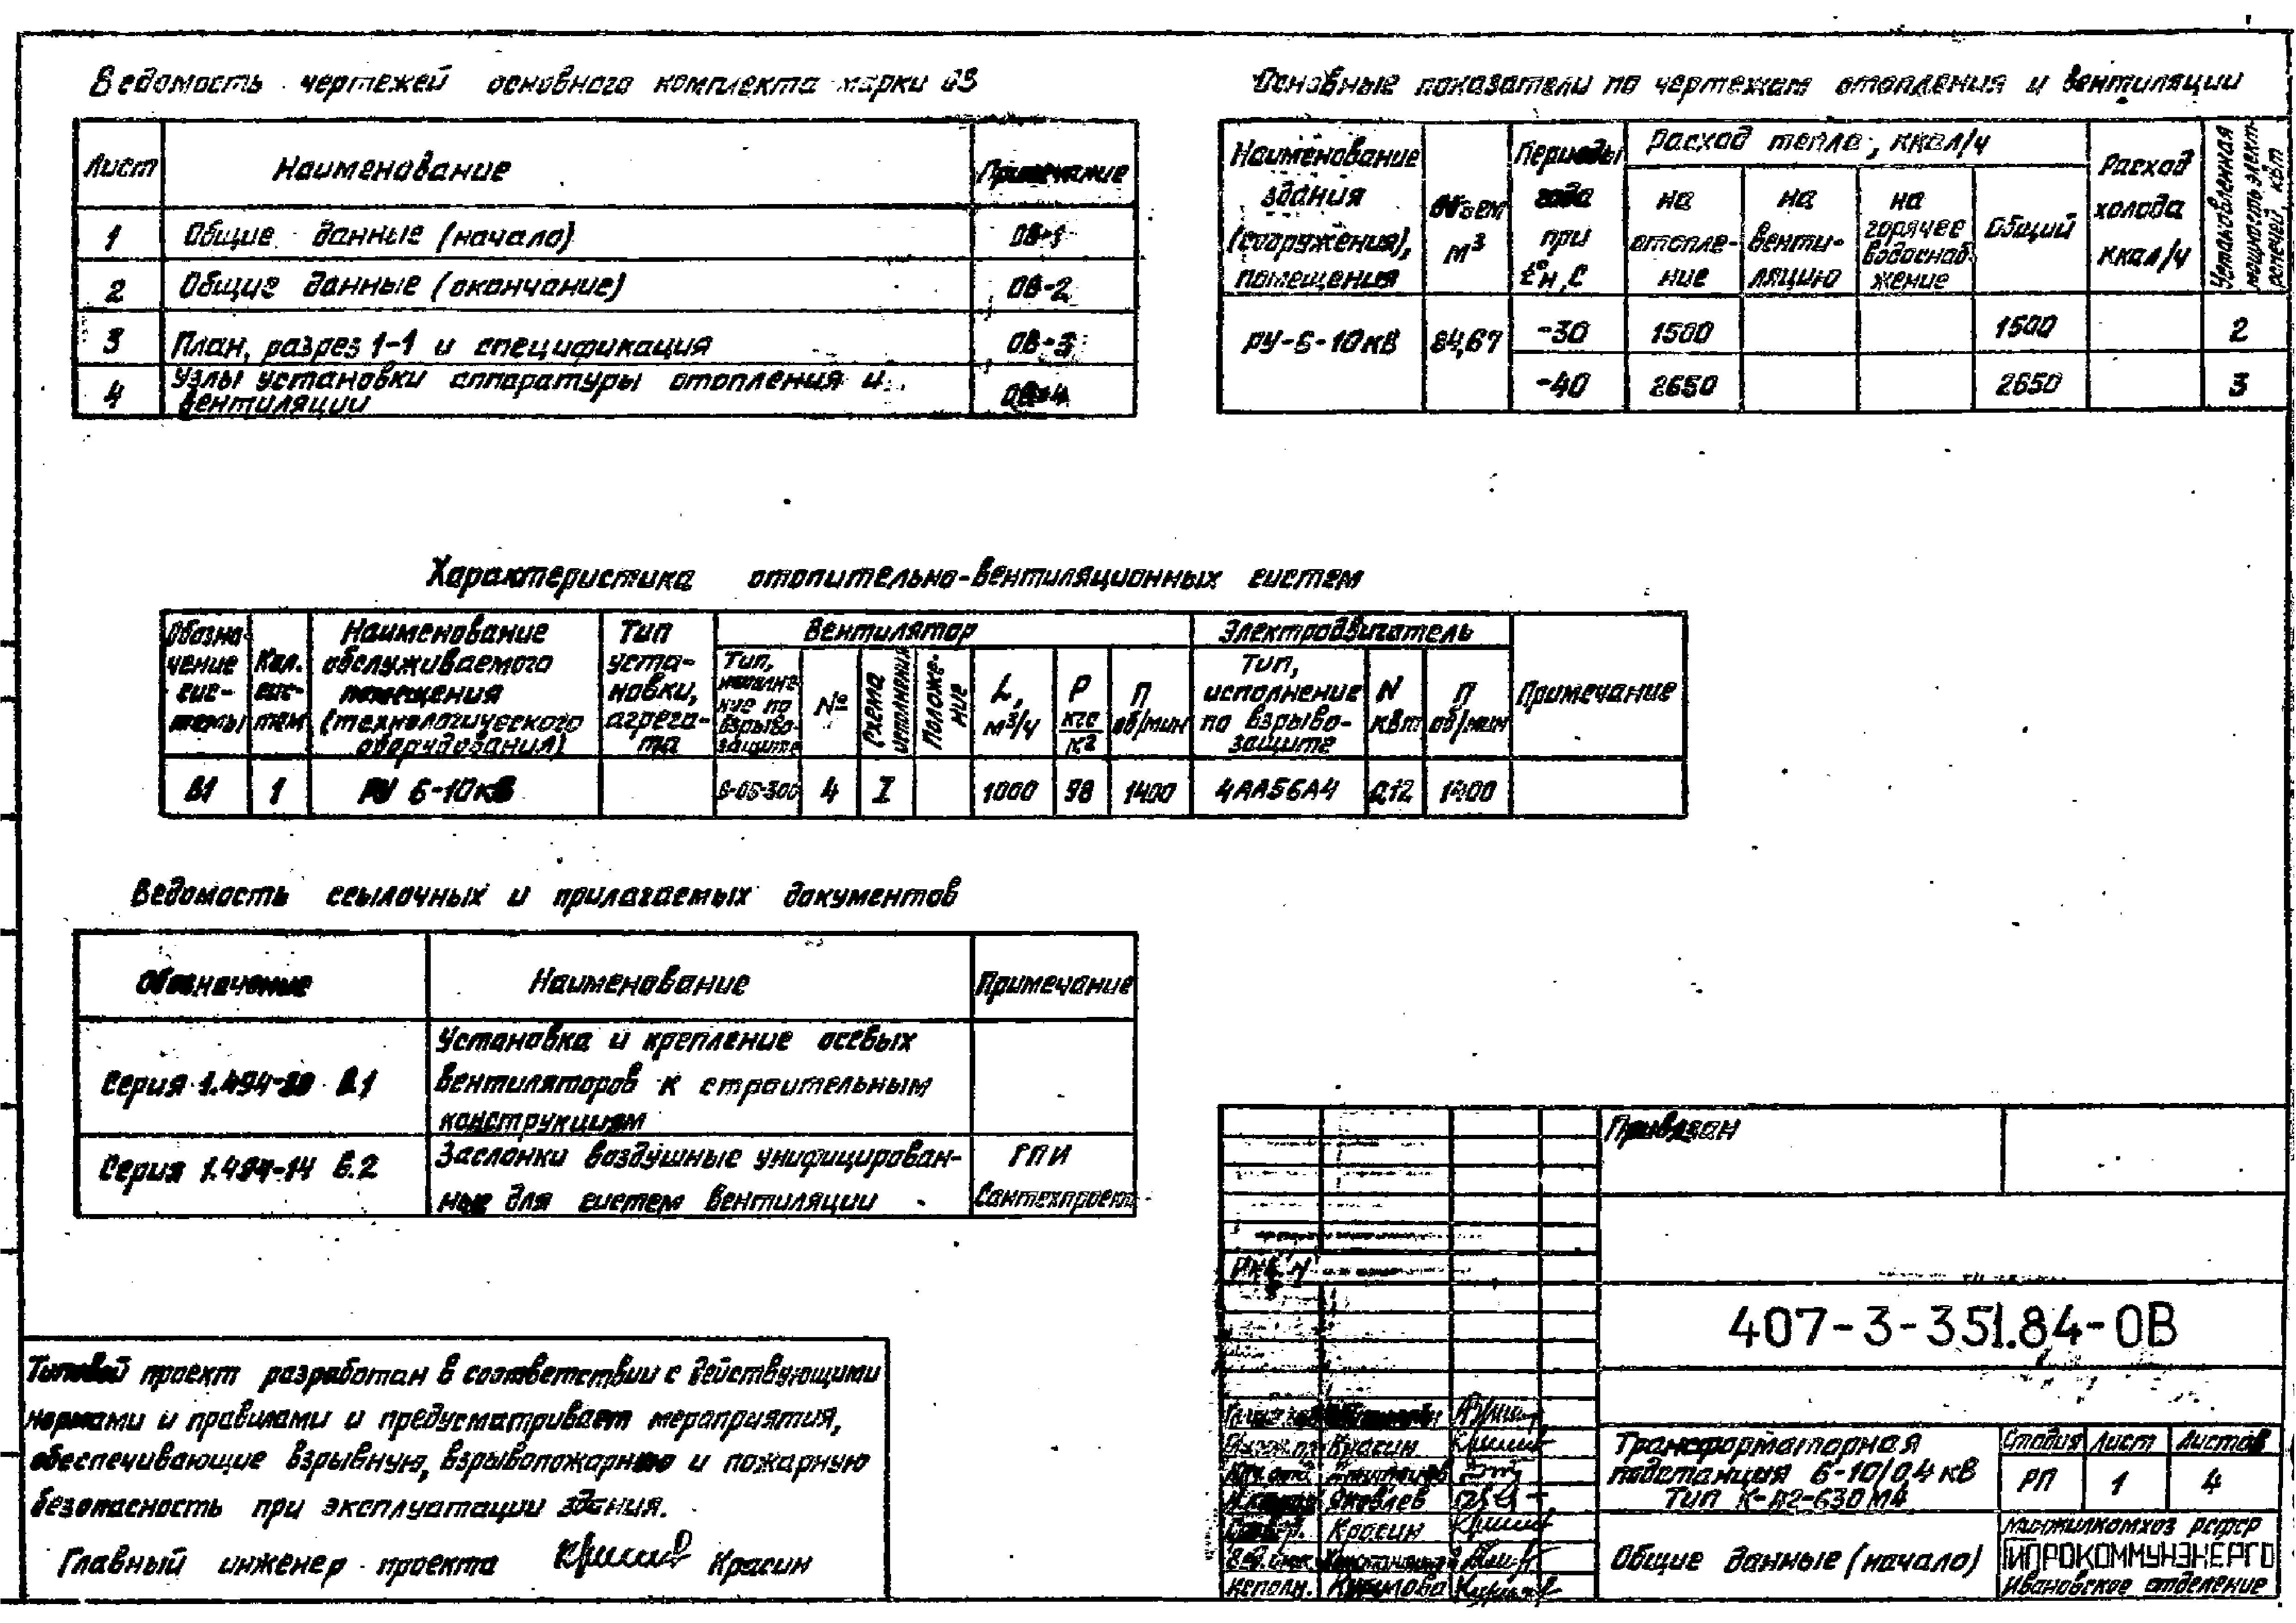 Ведомость чертежей основного комплекта марки ОВ
Лист Наименование Примечание
1 Общие данные (начало) ОВ-1
2 Общие данные (окончание) ОВ-2
3 План, разрез 1-1 и спецификация ОВ-3
4 Узлы установки аппаратуры отопления и
вентиляции ОВ-4
Основные показатели по чертежам отопления и вентиляции
Наименование
здания
(сооружения),
помещения
Объем
м³
Периоды
года
при
tºн,С
Расход тепла, ккал/ч
на
отопле-
ние
на
венти-
ляцию
на
горячее
водоснаб-
жение
Общий
Расход
холода
ккал/ч
Установленная
мощность элект-
ропечей, кВт
РУ-6-10кВ 84,67 -30 1500 1500 2
-40 2650 2650 3
Характеристика отопительно-вентиляционных систем
Обозна-
чение
сис-
темы
Кол.
сис-
тем
Наименование
обслуживаемого
помещения
(технологического
оборудования)
Тип
уста-
новки,
агрега-
та
Вентилятор
Тип,
исполне-
ние по
взрыво-
защите
№
Схема
исполнения
Положе-
ние
L,
м³/ч
Р
кгс
м²
П
об/мин
Электродвигатель
Тип,
исполнение
по взрыво-
защите
N
кВт
П
об/мин
Примечание
В1 1 РУ 6-10кВ В-06-300 4 I 1000 98 1400 4АА56А4 0,12 1400
Ведомость ссылочных и прилагаемых документов
Обозначение Наименование Примечание
Установка и крепление осевых
Серия 1.494- В.1 вентиляторов к строительным
конструкциям
Серия 1.494-14 В.2 Заслонки воздушные унифицирован- ГПИ
ные для систем вентиляции Сантехпроект
Типовой проект разработан в соответствии с действующими
нормами и правилами и предусматривает мероприятия,
обеспечивающие взрывную, взрывопожарную и пожарную
безопасность при эксплуатации здания.
Главный инженер проекта Красин
Привязан
Инв. №
407-3-351.84-ОВ
Красин
Яковлев
Красин
Исполн.
Трансформаторная
подстанция 6-10/0,4 кВ
Тип К-42-630М4
Стадия Лист Листов
РП 1 4
Общие данные (начало)
Минжилкомхоз РСФСР
ГИПРОКОММУНЭНЕРГО
Ивановское отделение